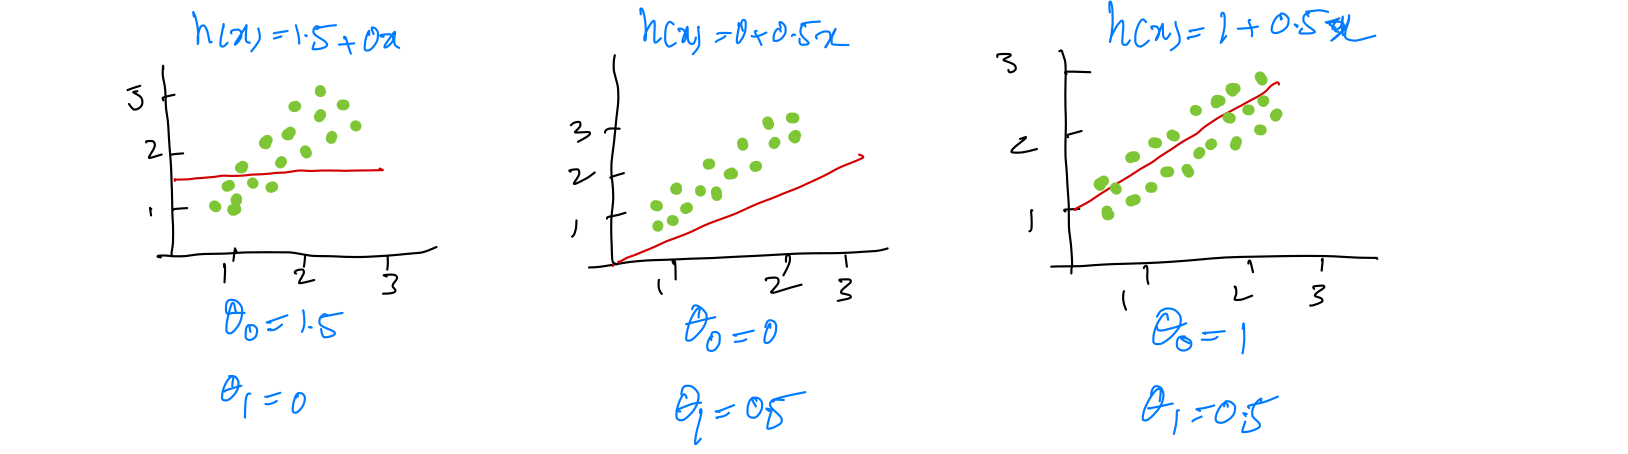 h(x) = 1.5 + 0x
3
2
1
1 2 3
θ₀ = 1.5
θ₁ = 0
h(x) = 0 + 0.5x
3
2
1
1 2 3
θ₀ = 0
θ₁ = 0.5
h(x) = 1 + 0.5x
3
2
1
1 2 3
θ₀ = 1
θ₁ = 0.5